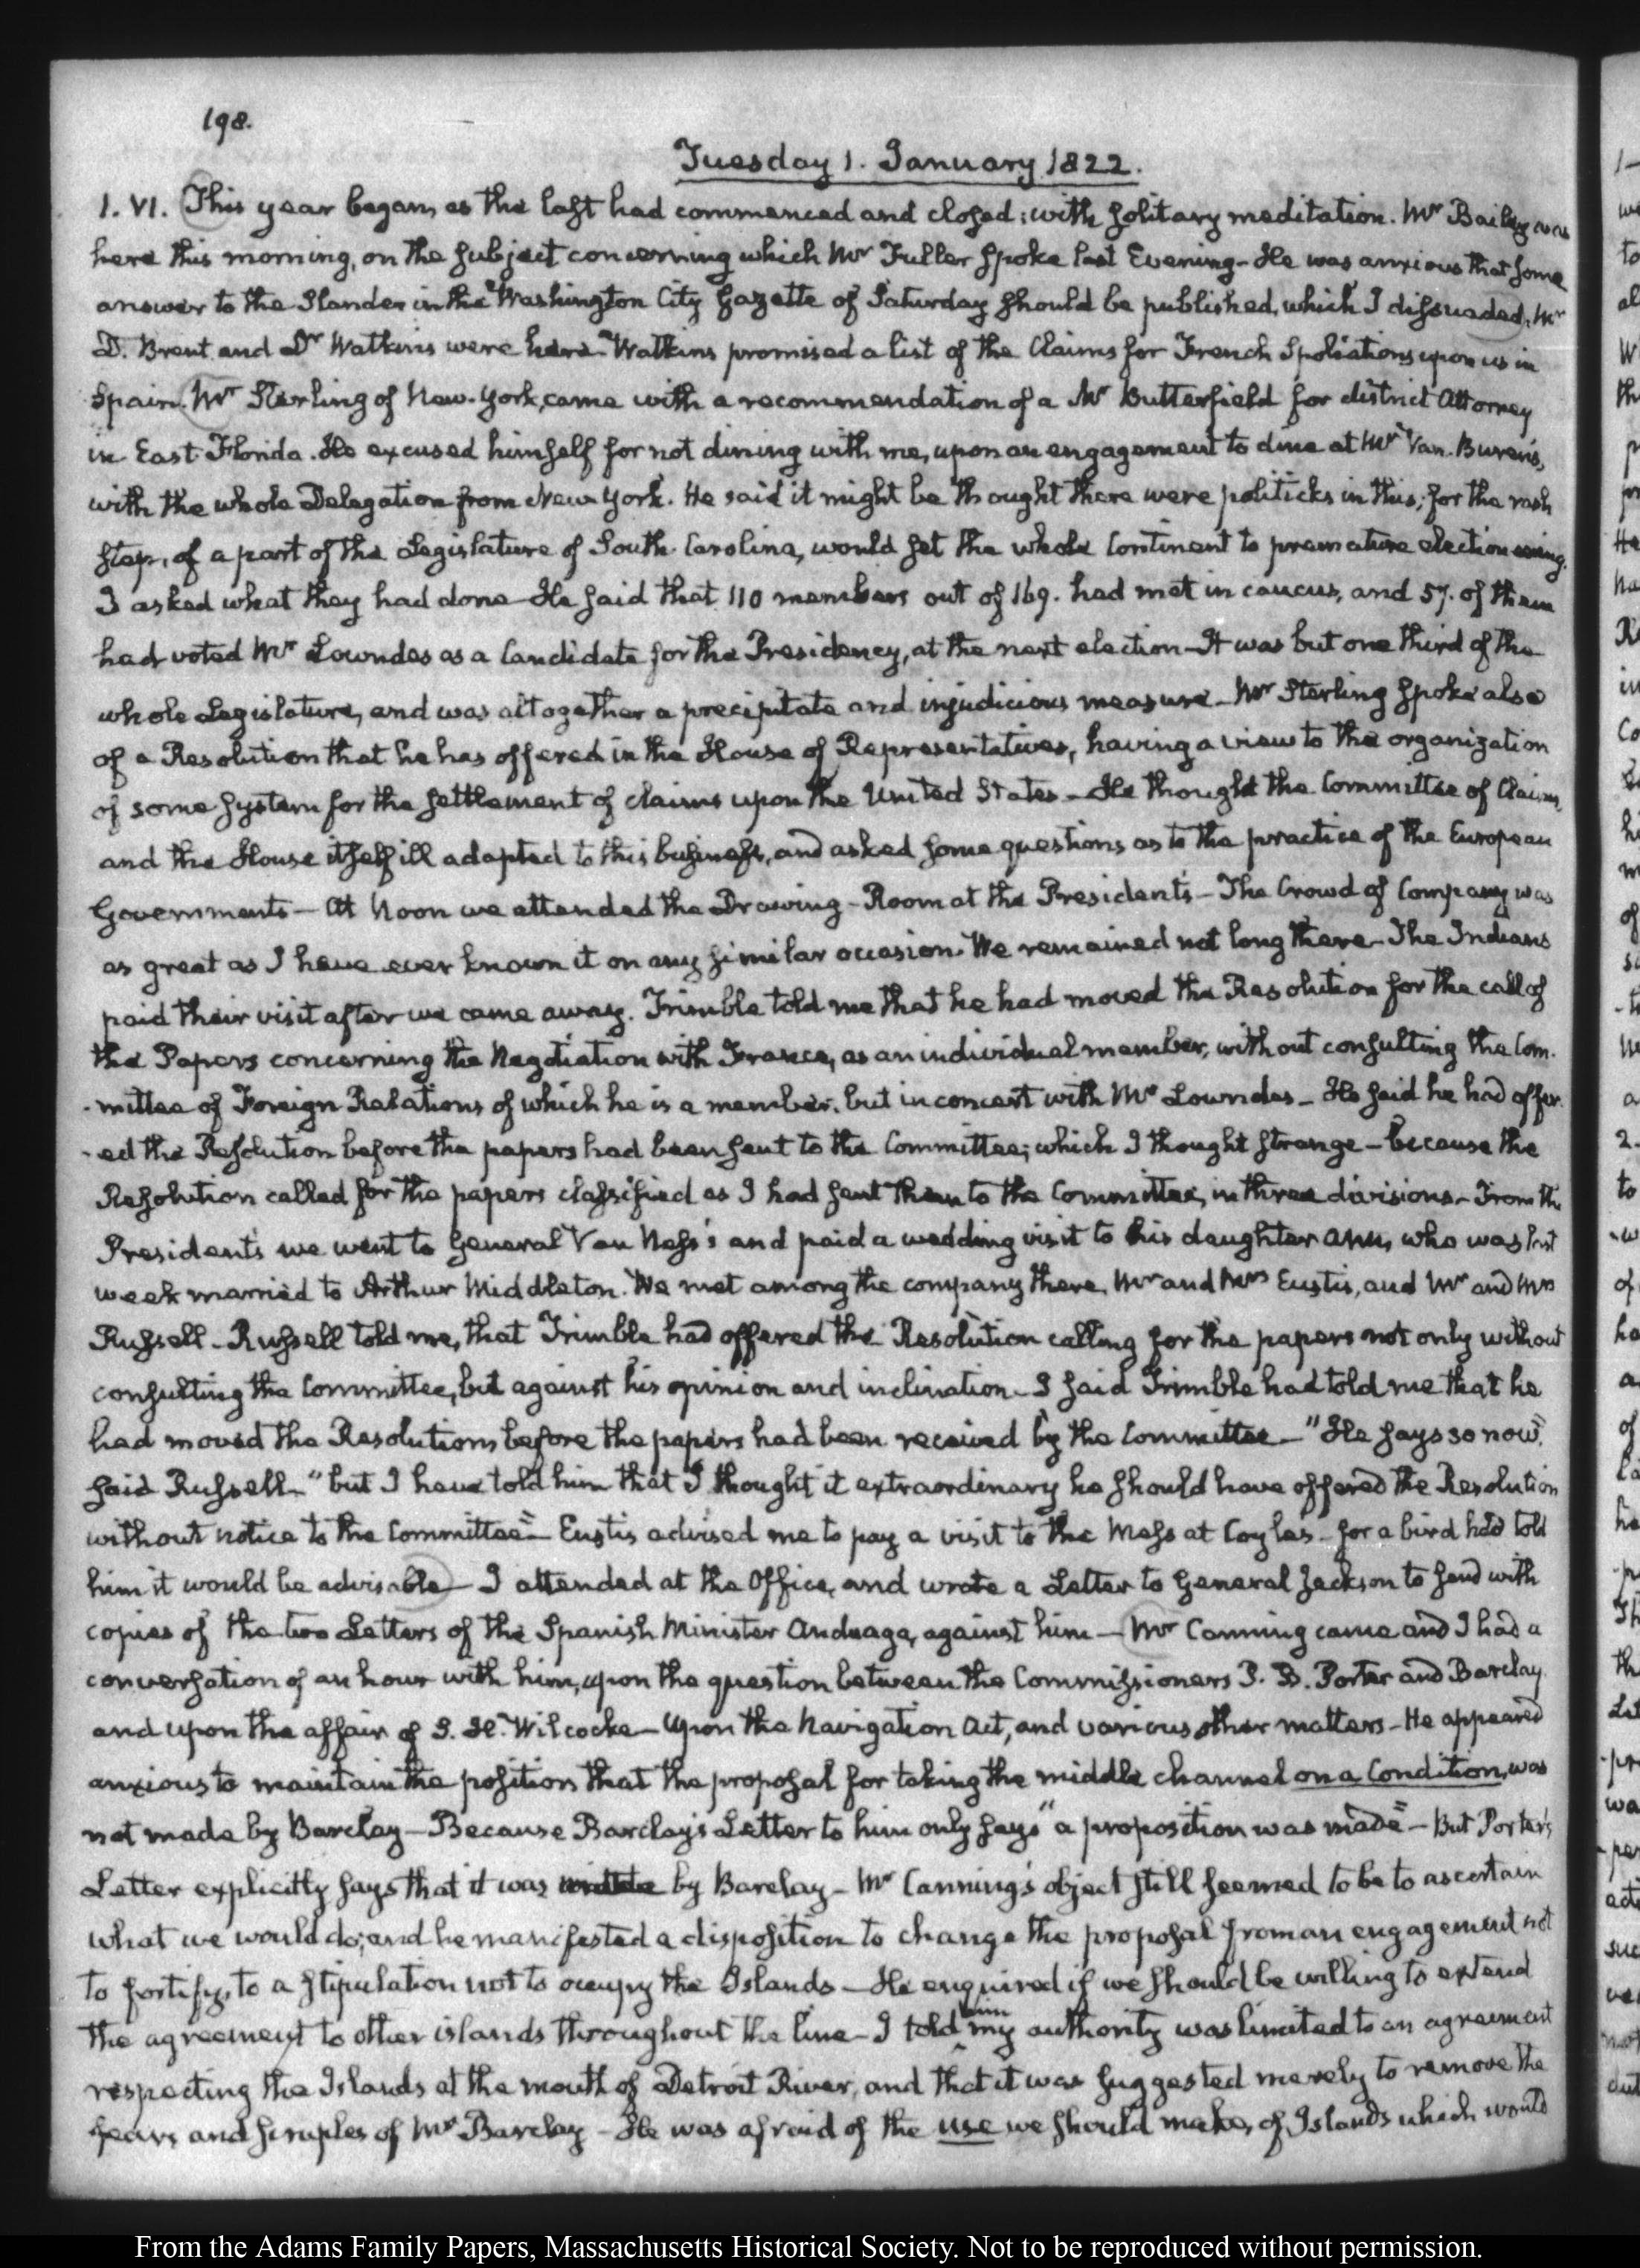 198.
Tuesday 1. January 1822.
1. VI. This year began, as the last had commenced and closed; with solitary meditation. Mr Bailey was
here this morning, on the subject concerning which Mr Fuller spoke last Evening- He was anxious that some
answer to the Slander in the Washington City Gazette of Saturday should be published, which I dissuaded. Mr
D. Brent and Dr Watkins were here- Watkins promised a list of the Claims for French Spoliations upon us in
Spain. Mr Sterling of New-York, came with a recommendation of a Mr Butterfield for district Attorney
in East-Florida. He excused himself for not dining with me, upon an engagement to dine at Mr Van-Buren's,
with the whole Delegation from New-York. He said it might be thought there were politicks in this; for the rash
step, of a part of the Legislature of South-Carolina, would set the whole Continent to premature electioneering.
I asked what they had done- He said that 110 members out of 169. had met in caucus, and 57. of them
had voted Mr Lowndes as a Candidate for the Presidency, at the next election- It was but one third of the
whole Legislature, and was altogether a precipitate and injudicious measure- Mr Sterling spoke also
of a Resolution that he has offered in the House of Representatives, having a view to the organization
of some system for the settlement of claims upon the United States- He thought the Committee of Claims,
and the House itself ill adapted to this business, and asked some questions as to the practice of the European
Governments- At Noon we attended the Drawing-Room at the President's- The Crowd of Company was
as great as I have ever known it on any similar occasion. We remained not long there- The Indians
paid their visit after we came away. Trimble told me that he had moved the Resolution for the call of
the Papers concerning the Negotiation with France, as an individual member, without consulting the Com-
-mittee of Foreign Relations of which he is a member, but in concert with Mr Lowndes- He said he had offer-
-ed the Resolution before the papers had been sent to the Committee; which I thought strange- because the
Resolution called for the papers classified as I had sent them to the Committee, in three divisions- From the
President's we went to General Van Ness's and paid a wedding visit to his daughter Ann, who was last
week married to Arthur Middleton. We met among the company there, Mr and Mrs Eustis, and Mr and Mrs
Russell- Russell told me, that Trimble had offered the Resolution calling for the papers not only without
consulting the Committee, but against his opinion and inclination- I said Trimble had told me that he
had moved the Resolutions before the papers had been received by the Committee- "He says so now",
said Russell- "but I have told him that I thought it extraordinary he should have offered the Resolution
without notice to the Committee"- Eustis advised me to pay a visit to the Mess at Coyle's- for a bird had told
him it would be advisable- I attended at the Office, and wrote a Letter to General Jackson to send with
copies of the two Letters of the Spanish Minister Anduaga, against him- Mr Canning came and I had a
conversation of an hour with him, upon the question between the Commissioners P. B. Porter and Barclay
and upon the affair of S. H. Wilcocke- Upon the Navigation Act, and various other matters- He appeared
anxious to maintain the position that the proposal for taking the middle channel on a Condition, was
not made by Barclay- Because Barclay's Letter to him only says "a proposition was made"- But Porter's
Letter explicitly says that it was by Barclay- Mr Canning's object still seemed to be to ascertain
what we would do; and he manifested a disposition to change the proposal from an engagement not
to fortify, to a stipulation not to occupy the Islands- He enquired if we should be willing to extend
the agreement to other islands throughout the line- I told him my authority was limited to an agreement
respecting the Islands at the mouth of Detroit River, and that it was suggested merely to remove the
fears and scruples of Mr Barclay- He was afraid of the use we should make, of Islands which would
From the Adams Family Papers, Massachusetts Historical Society. Not to be reproduced without permission.